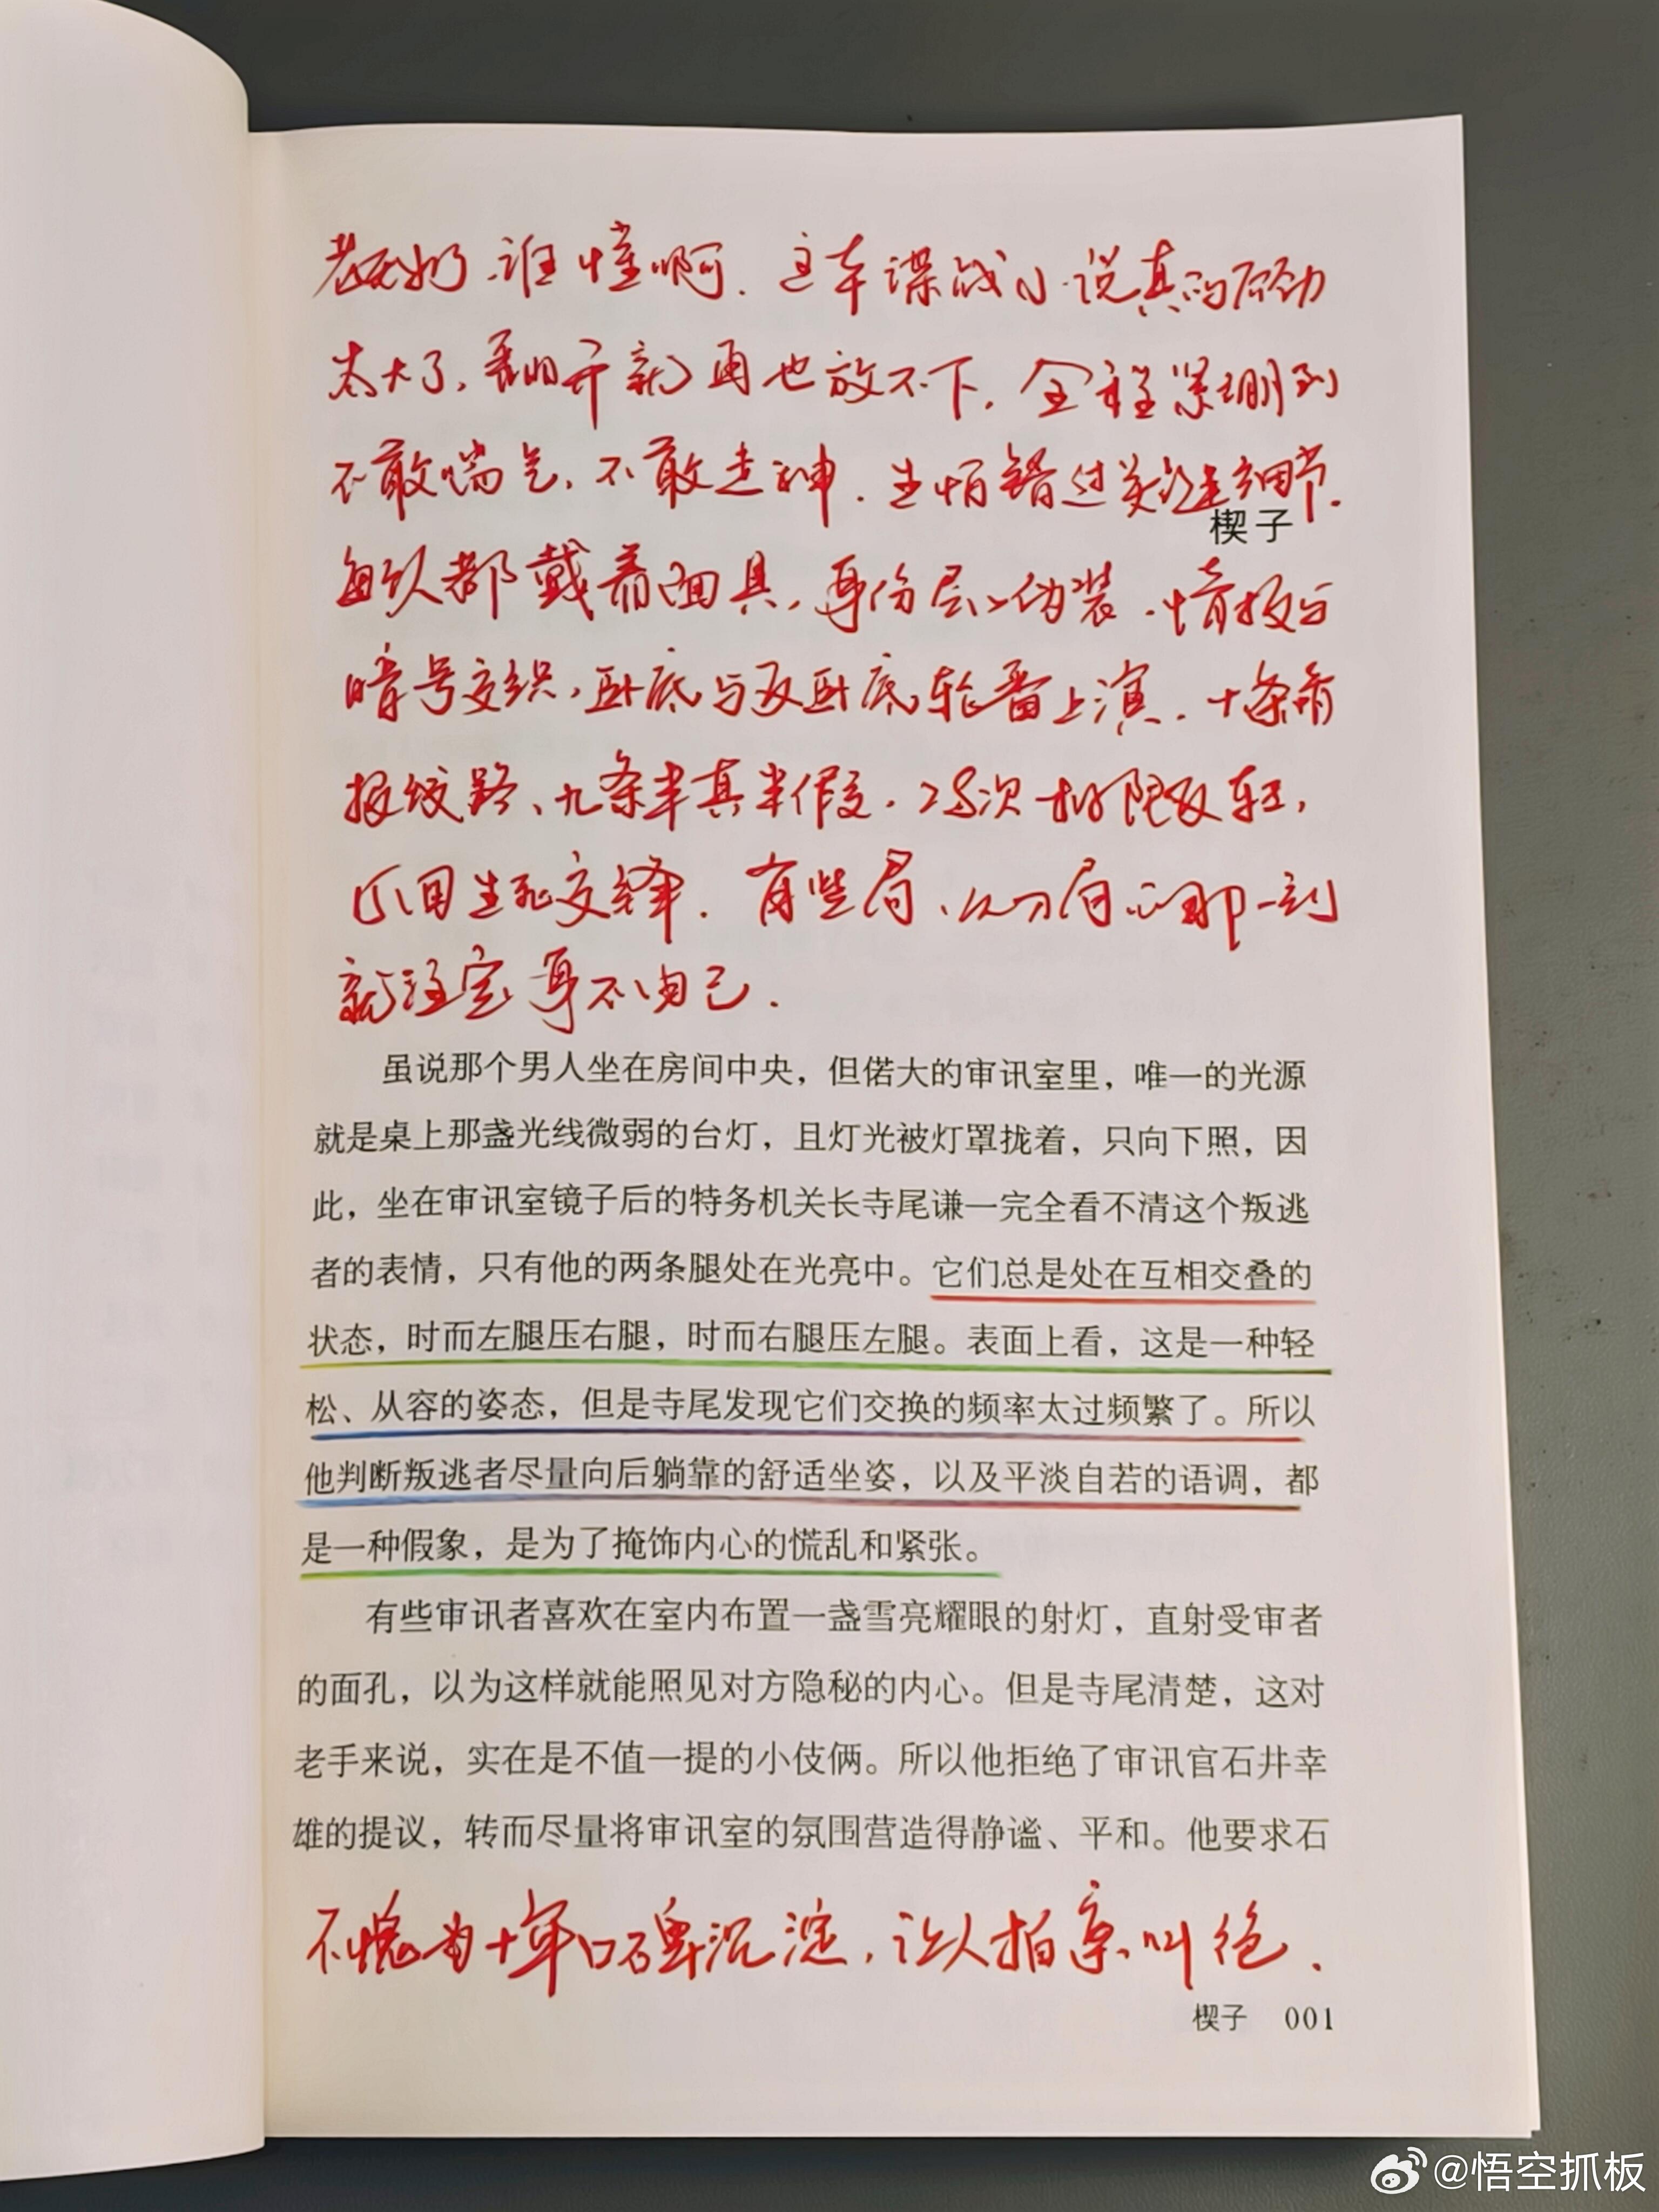 老天奶，谁懂啊，这本谍战小说真的后劲
太大了，翻开就再也放不下，全程紧绷到
不敢喘气，不敢走神，生怕错过关键细节。
楔子
每个人都戴着面具，身份层层伪装，情报与
暗号交织，卧底与反卧底轮番上演，十条情
报线路、九条半真半假，25次极限反转，
生死交锋，有些局，从入局的那一刻
就注定身不由己。
虽说那个男人坐在房间中央，但偌大的审讯室里，唯一的光源
就是桌上那盏光线微弱的台灯，且灯光被灯罩拢着，只向下照，因
此，坐在审讯室镜子后的特务机关长寺尾谦一完全看不清这个叛逃
者的表情，只有他的两条腿处在光亮中。它们总是处在互相交叠的
状态，时而左腿压右腿，时而右腿压左腿。表面上看，这是一种轻
松、从容的姿态，但是寺尾发现它们交换的频率太过频繁了。所以
他判断叛逃者尽量向后躺靠的舒适坐姿，以及平淡自若的语调，都
是一种假象，是为了掩饰内心的慌乱和紧张。
有些审讯者喜欢在室内布置一盏雪亮耀眼的射灯，直射受审者
的面孔，以为这样就能照见对方隐秘的内心。但是寺尾清楚，这对
老手来说，实在是不值一提的小伎俩。所以他拒绝了审讯官石井幸
雄的提议，转而尽量将审讯室的氛围营造得静谧、平和。他要求石
不愧为十年口碑沉淀，让人拍案叫绝。
楔子 001
@悟空抓板